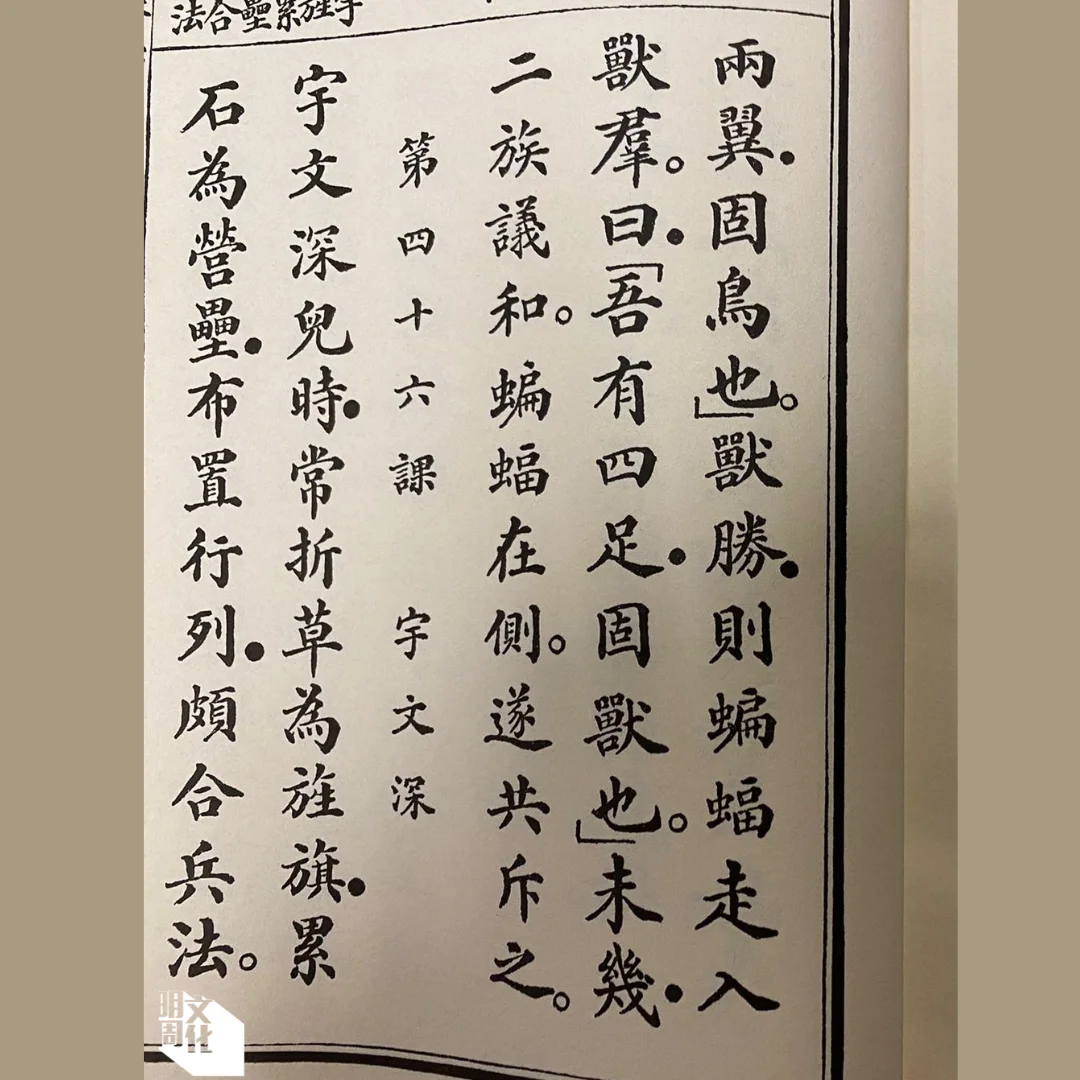 兩翼．固鳥也。」獸勝．則蝙蝠走入
獸羣。曰．「吾有四足．固獸也。」未幾．
二族議和。蝙蝠在側。遂共斥之。
第四十六課　宇文深
宇文深兒時．常折草為旌旗．累
石為營壘．布置行列．頗合兵法。
宇旌累壘合法
明周文化